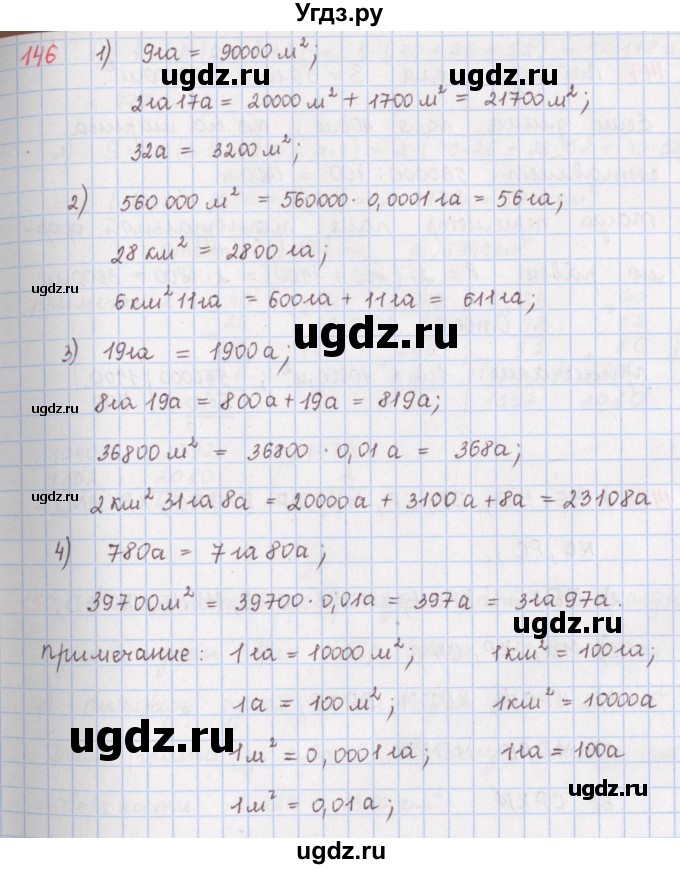 Угдз.ру
146 1) 9га = 90000 м²;
ugdz.ru
2га 17а = 20000 м² + 1700 м² = 21700 м²;
32а = 3200 м²;
ugdz.ru
2) 560 000 м² = 560000 · 0,0001 га = 56 га;
28 км² = 2800 га;
ugdz.ru
6 км² 11 га = 600 га + 11 га = 611 га;
ugdz.ru
3) 19 га = 1900 а;
ugdz.ru
8 га 19а = 800 а + 19а = 819а;
36800 м² = 36800 · 0,01 а = 368а;
ugdz.ru
2 км² 31 га 8а = 20000 а + 3100 а + 8а = 23108а
4) 780а = 7 га 80а;
39700 м² = 39700 · 0,01а = 397а = 3 га 97а.
ugdz.ru
Примечание: 1 га = 10000 м²; 1 км² = 100 га;
1а = 100 м²; 1 км² = 10000а
ugdz.ru
1 м² = 0,0001 га; 1 га = 100а
ugdz.ru
1 м² = 0,01 а;
ugdz.ru